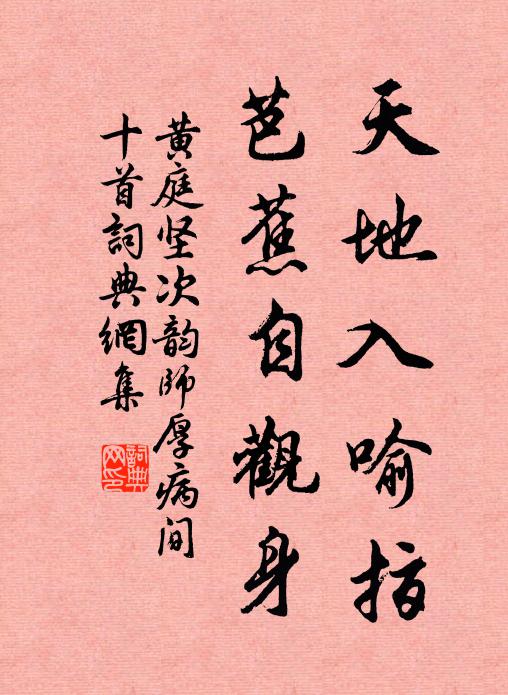 天地入喻指
芭蕉自觀身
黄庭坚次韵師厚病间
十首詞典網集
詞典
网印